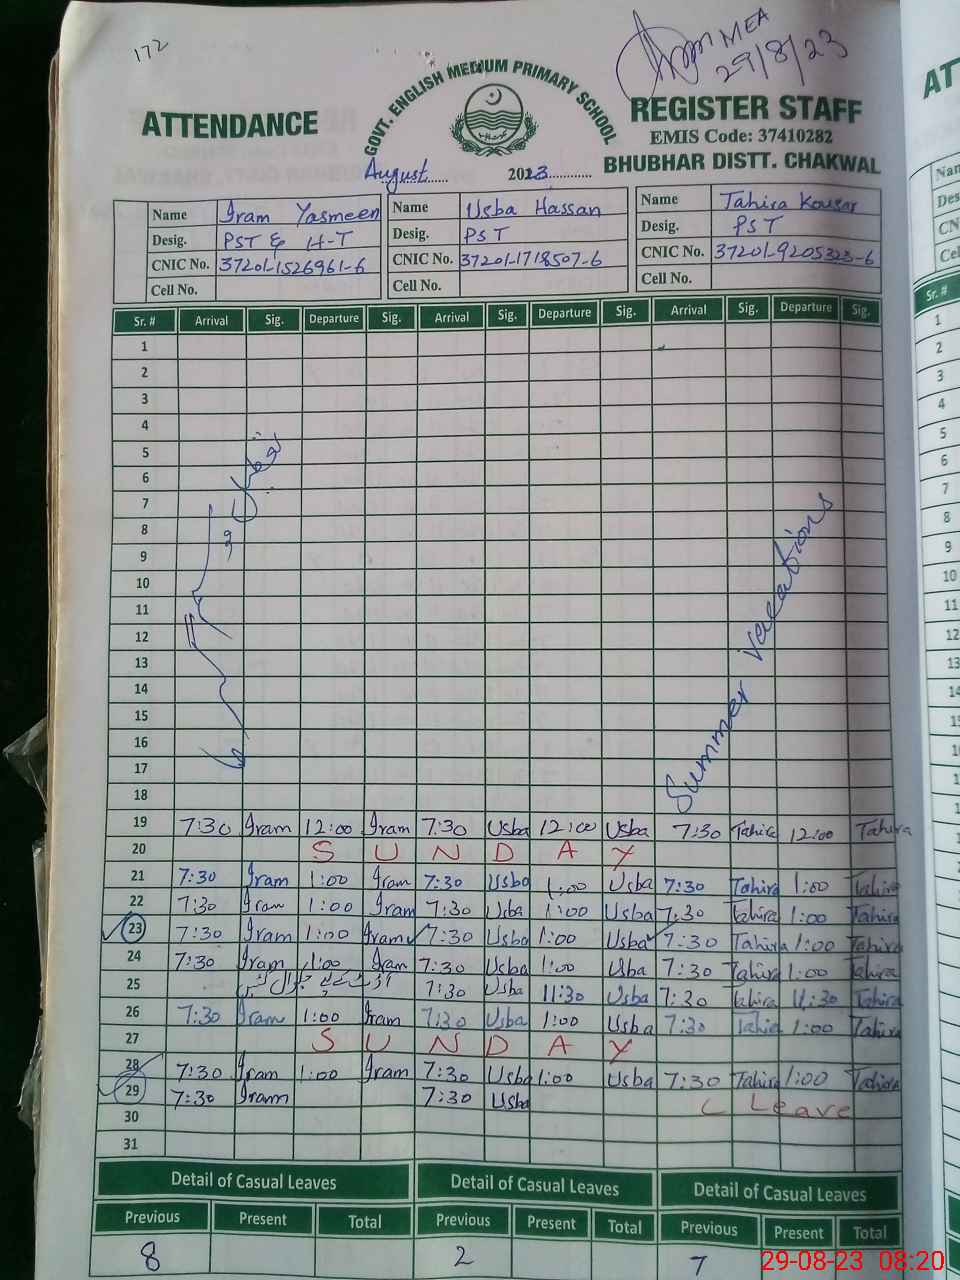 172
MEA
29/8/23
GOVT. ENGLISH MEDIUM PRIMARY SCHOOL
ATTENDANCE
REGISTER STAFF
EMIS Code: 37410282
BHUBHAR DISTT. CHAKWAL
August 2023
Name Iram Yasmeen Name Usba Hassan Name Tahira Kousar
Desig. PST & H-T Desig. PST Desig. PST
CNIC No. 37201-1526961-6 CNIC No. 37201-1718507-6 CNIC No. 37201-9205323-6
Cell No. Cell No. Cell No.
Sr. # Arrival Sig. Departure Sig. Arrival Sig. Departure Sig. Arrival Sig. Departure Sig.
1
2
3
4
5
6
7
8
9
10
11
12
13
14
15
16
17
18
Summer vacations
19 7:30 Iram 12:00 Iram 7:30 Usba 12:00 Usba 7:30 Tahira 12:00 Tahira
20 SUNDAY
21 7:30 Iram 1:00 Iram 7:30 Usba 1:00 Usba 7:30 Tahira 1:00 Tahira
22 7:30 Iram 1:00 Iram 7:30 Usba 1:00 Usba 7:30 Tahira 1:00 Tahira
23 7:30 Iram 1:00 Iram 7:30 Usba 1:00 Usba 7:30 Tahira 1:00 Tahira
24 7:30 Iram 1:00 Iram 7:30 Usba 1:00 Usba 7:30 Tahira 1:00 Tahira
25 7:30 Usba 11:30 Usba 7:30 Tahira 11:30 Tahira
26 7:30 Iram 1:00 Iram 7:30 Usba 1:00 Usba 7:30 Tahira 1:00 Tahira
27 SUNDAY
28 7:30 Iram 1:00 Iram 7:30 Usba 1:00 Usba 7:30 Tahira 1:00 Tahira
29 7:30 Iram 7:30 Usba C Leave
30
31
Detail of Casual Leaves Detail of Casual Leaves Detail of Casual Leaves
Previous Present Total Previous Present Total Previous Present Total
8 2 7
29-08-23 08:20